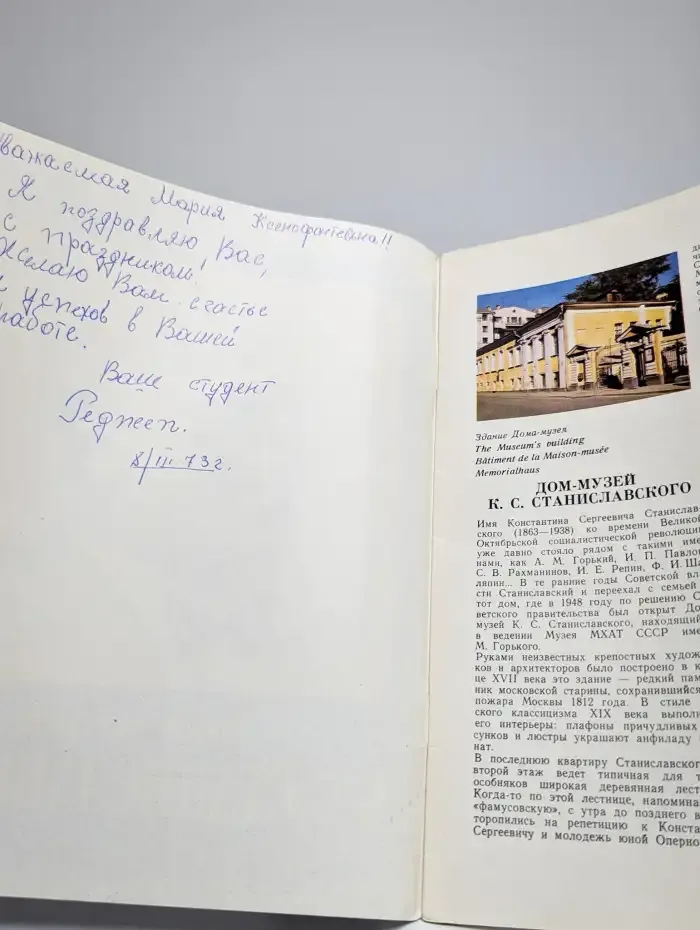 Уважаемая Мария Ксенофонтевна!!
Я поздравляю, Вас,
с праздником!
Желаю Вам счастье
и успехов в Вашей
работе.
Ваше студент
Реджеп.
8/III 73г.
Здание Дома-музея
The Museum's building
Bâtiment de la Maison-musée
Memorialhaus
ДОМ-МУЗЕЙ
К. С. СТАНИСЛАВСКОГО
Имя Константина Сергеевича Станислав-
ского (1863—1938) ко времени Великой
Октябрьской социалистической революции
уже давно стояло рядом с такими име-
нами, как А. М. Горький, И. П. Павлов
С. В. Рахманинов, И. Е. Репин, Ф. И. Ша-
ляпин... В те ранние годы Советской вла
сти Станиславский и переехал с семьей
тот дом, где в 1948 году по решению С
ветского правительства был открыт До
музей К. С. Станиславского, находящий
в ведении Музея МХАТ СССР име
М. Горького.
Руками неизвестных крепостных худож
ков и архитекторов было построено в к
це XVII века это здание — редкий пам
ник московской старины, сохранившийся
пожара Москвы 1812 года. В стиле
ского классицизма XIX века выполн
его интерьеры: плафоны причудливых
сунков и люстры украшают анфиладу
нат.
В последнюю квартиру Станиславског
второй этаж ведет типичная для т
особняков широкая деревянная лест
Когда-то по этой лестнице, напомина
«фамусовскую», с утра до позднего в
торопились на репетицию к Конста
Сергеевичу и молодежь юной Оперно